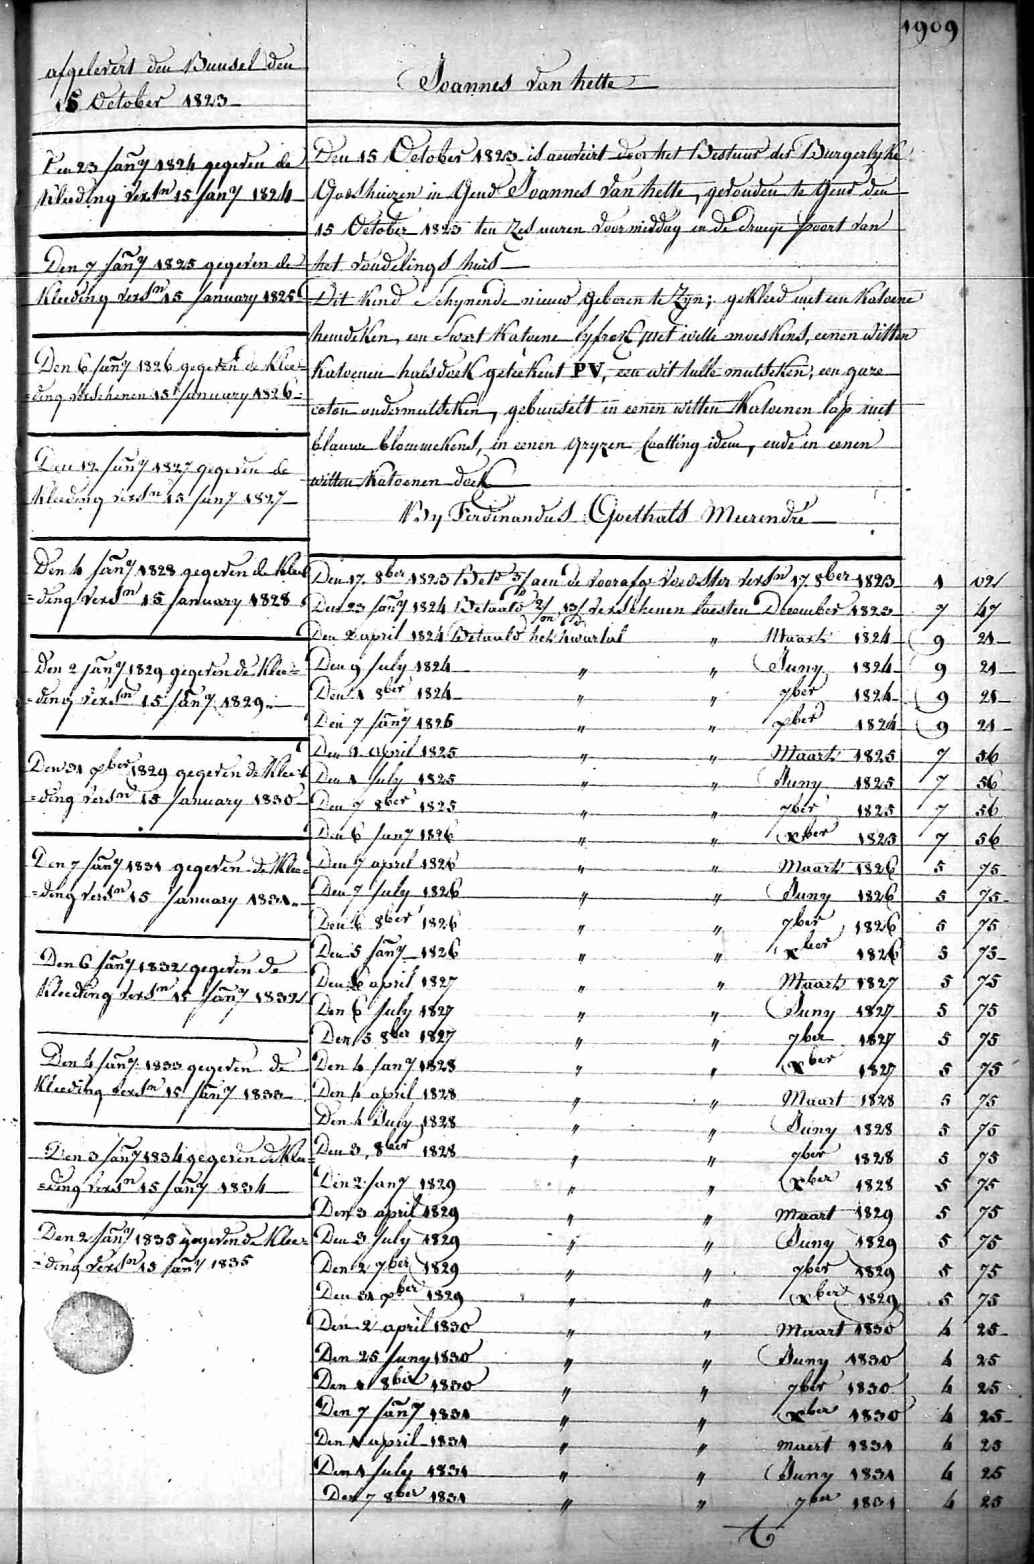 1909
afgelevert den Bunsel den
15 October 1823
Den 23 Jany 1824 gegeven de
kleeding versn 15 Jany 1824
Den 7 Jany 1825 gegeven de
kleeding versn 15 January 1825
Den 6 Jany 1826 gegeven de klee=
=ding verschenen 15 January 1826
Den 12 Jany 1827 gegeven de
kleeding versn 15 Jany 1827
Den 4 Jany 1828 gegeven de klee=
=ding versn 15 January 1828
Den 2 Jany 1829 gegeven de klee=
=ding versn 15 Jany 1829
Den 31 xber 1829 gegeven de klee=
=ding versn 15 January 1830
Den 7 Jany 1831 gegeven de klee=
=ding versn 15 January 1831
Den 6 Jany 1832 gegeven de
kleeding versn 15 Jany 1832
Den 4 Jany 1833 gegeven de
kleeding versn 15 Jany 1833
Den 3 Jany 1834 gegeven de klee=
=ding versn 15 Jany 1834
Den 2 Jany 1835 gegeven de klee=
=ding versn 15 Jany 1835
Joannes Van hette
Den 15 October 1823 is door het Bestuur der Burgerlyke
Godshuizen in Gend Joannes Van hette, gevonden te Gend den
15 October 1823 ten zes uuren voormiddag en de Draeije poort van
het vondelings huis
Dit kind schynende nieuw geboren te zyn; gekleed met een katoene
hemdeken, een swert katoene lyfrok met witte moeskens, eenen witten
katoenen halsdoek geteekent PV, een wit tulle mutseken; een gaze
coton ondermutseken, gebunselt in eenen witten katoenen lap met
blauwe blommekens, in eenen gryzen Catting idem, ende in eenen
witten katoenen doek
By Ferdinandus Goethals Meerendre
Den 17 8ber 1823 Bete aen de voedster versn 17 8ber 1823 1 02
Den 23 Jany 1824 Betaald verschenen laesten December 1823 7 47
Den 2 april 1824 Betaald het kwartal " Maart 1824 9 21
Den 9 July 1824 " " Juny 1824 9 21
Den 1 8ber 1824 " " 7ber 1824 9 21
Den 7 Jany 1825 " " xber 1824 9 21
Den 1 april 1825 " " Maart 1825 7 56
Den 1 July 1825 " " Juny 1825 7 56
Den 7 8ber 1825 " " 7ber 1825 7 56
Den 6 Jany 1826 " " xber 1825 7 56
Den 7 april 1826 " " Maart 1826 5 75
Den 7 July 1826 " " Juny 1826 5 75
Den 6 8ber 1826 " " 7ber 1826 5 75
Den 5 Jany 1826 " " xber 1826 5 75
Den 6 april 1827 " " Maart 1827 5 75
Den 6 July 1827 " " Juny 1827 5 75
Den 5 8ber 1827 " " 7ber 1827 5 75
Den 4 Jany 1828 " " xber 1827 5 75
Den 4 april 1828 " " Maart 1828 5 75
Den 4 July 1828 " " Juny 1828 5 75
Den 3 8ber 1828 " " 7ber 1828 5 75
Den 2 Jany 1829 " " xber 1828 5 75
Den 3 april 1829 " " Maart 1829 5 75
Den 3 July 1829 " " Juny 1829 5 75
Den 2 7ber 1829 " " 7ber 1829 5 75
Den 31 xber 1829 " " xber 1829 5 75
Den 2 april 1830 " " Maart 1830 4 25
Den 25 Juny 1830 " " Juny 1830 4 25
Den 1 8ber 1830 " " 7ber 1830 4 25
Den 7 Jany 1831 " " xber 1830 4 25
Den 1 april 1831 " " maert 1831 4 25
Den 1 July 1831 " " Juny 1831 4 25
Den 7 8ber 1831 " " 7ber 1831 4 25